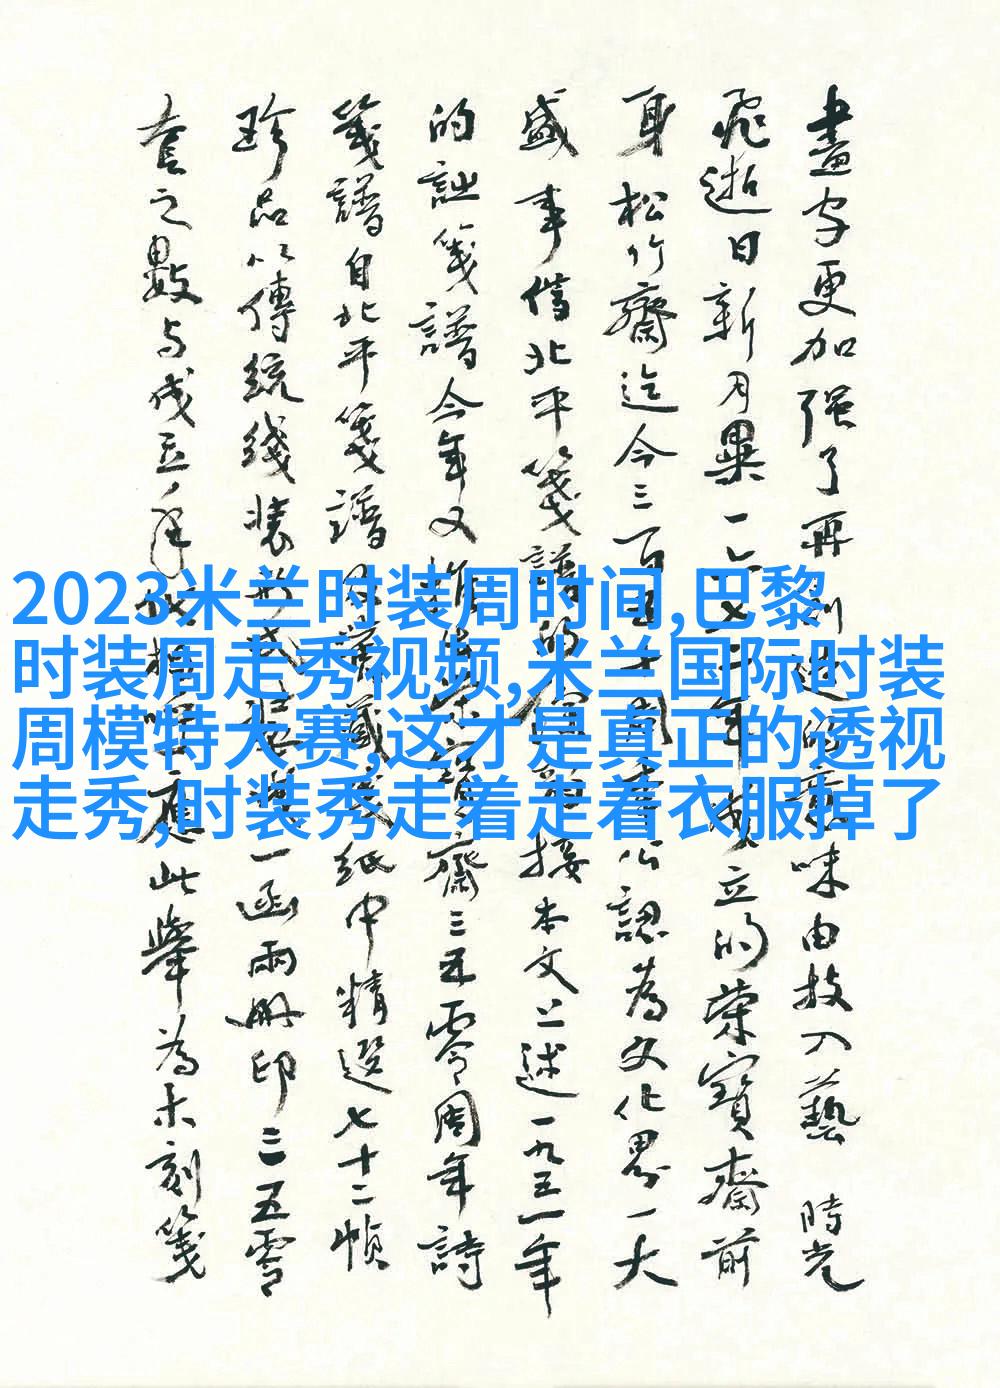 畫字更加强了再創造的意味由技入藝 時光
飛逝日新月異一六七二年成立的榮寶齋前
身松竹齋迄今三百五十周年公認為文化界一大
盛事借北平箋譜的接本文上述一九五一年
的詩箋譜今年又齋三五零周年詩
箋譜自北平箋譜箋紙中精選七十二幀
珍品以傳統綫裝形式一函兩冊印三五零
套之數与成立年數相呼應此舉為木刻箋
2023米兰时装周时间,巴黎
时装周走秀视频,米兰国际时装
周模特大赛,这才是真正的透视
走秀,时装秀走着走着衣服掉了